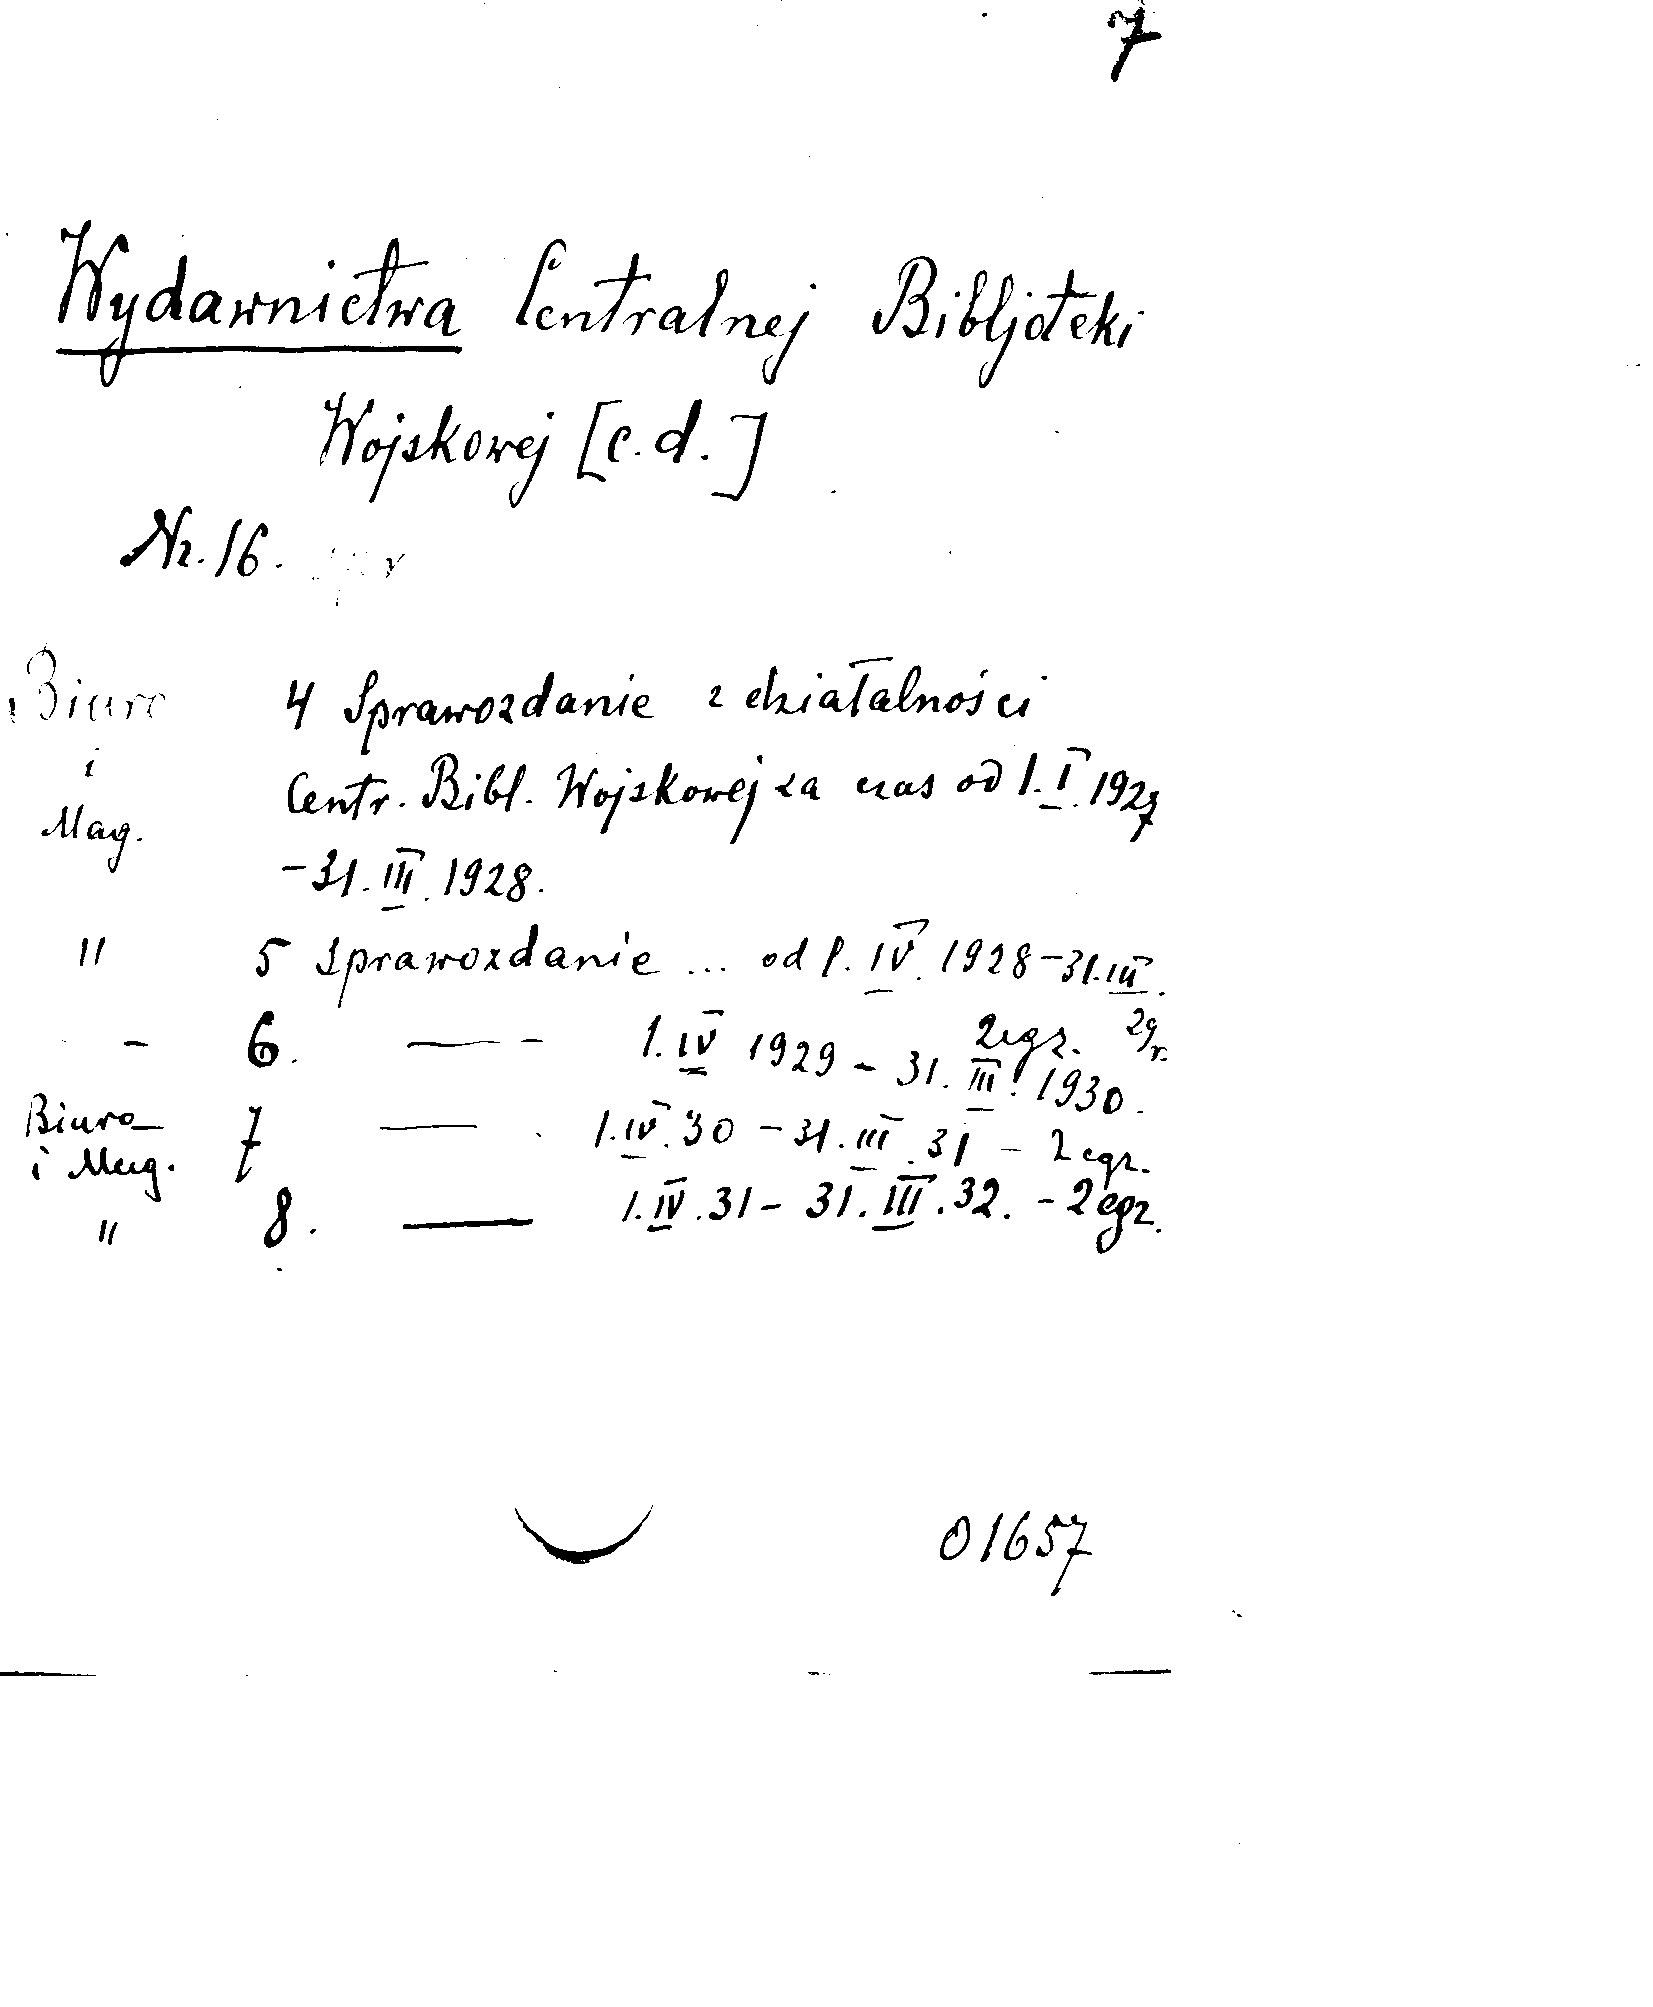 7
Wydawnictwa Centralnej Bibljoteki
Wojskowej [c.d.]
Nr. 16.
Biuro 4 Sprawozdanie z działalności
i Centr. Bibl. Wojskowej za czas od 1.I.1927
Mag. -31.III.1928.
" 5 Sprawozdanie ... od 1.IV.1928-31.III.
2egz. 29 r.
- 6. —— - 1.IV 1929 - 31.III.1930.
Biuro 7 —— 1.IV.30 - 31.III.31 - 2 egz.
i Mag.
" 8. —— 1.IV.31 - 31.III.32. - 2 egz.
01657